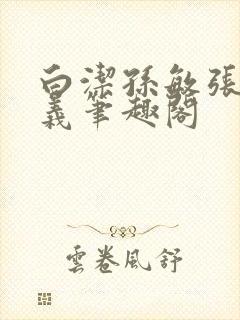 白潔孫敏張
義筆趣閣
雲卷風舒